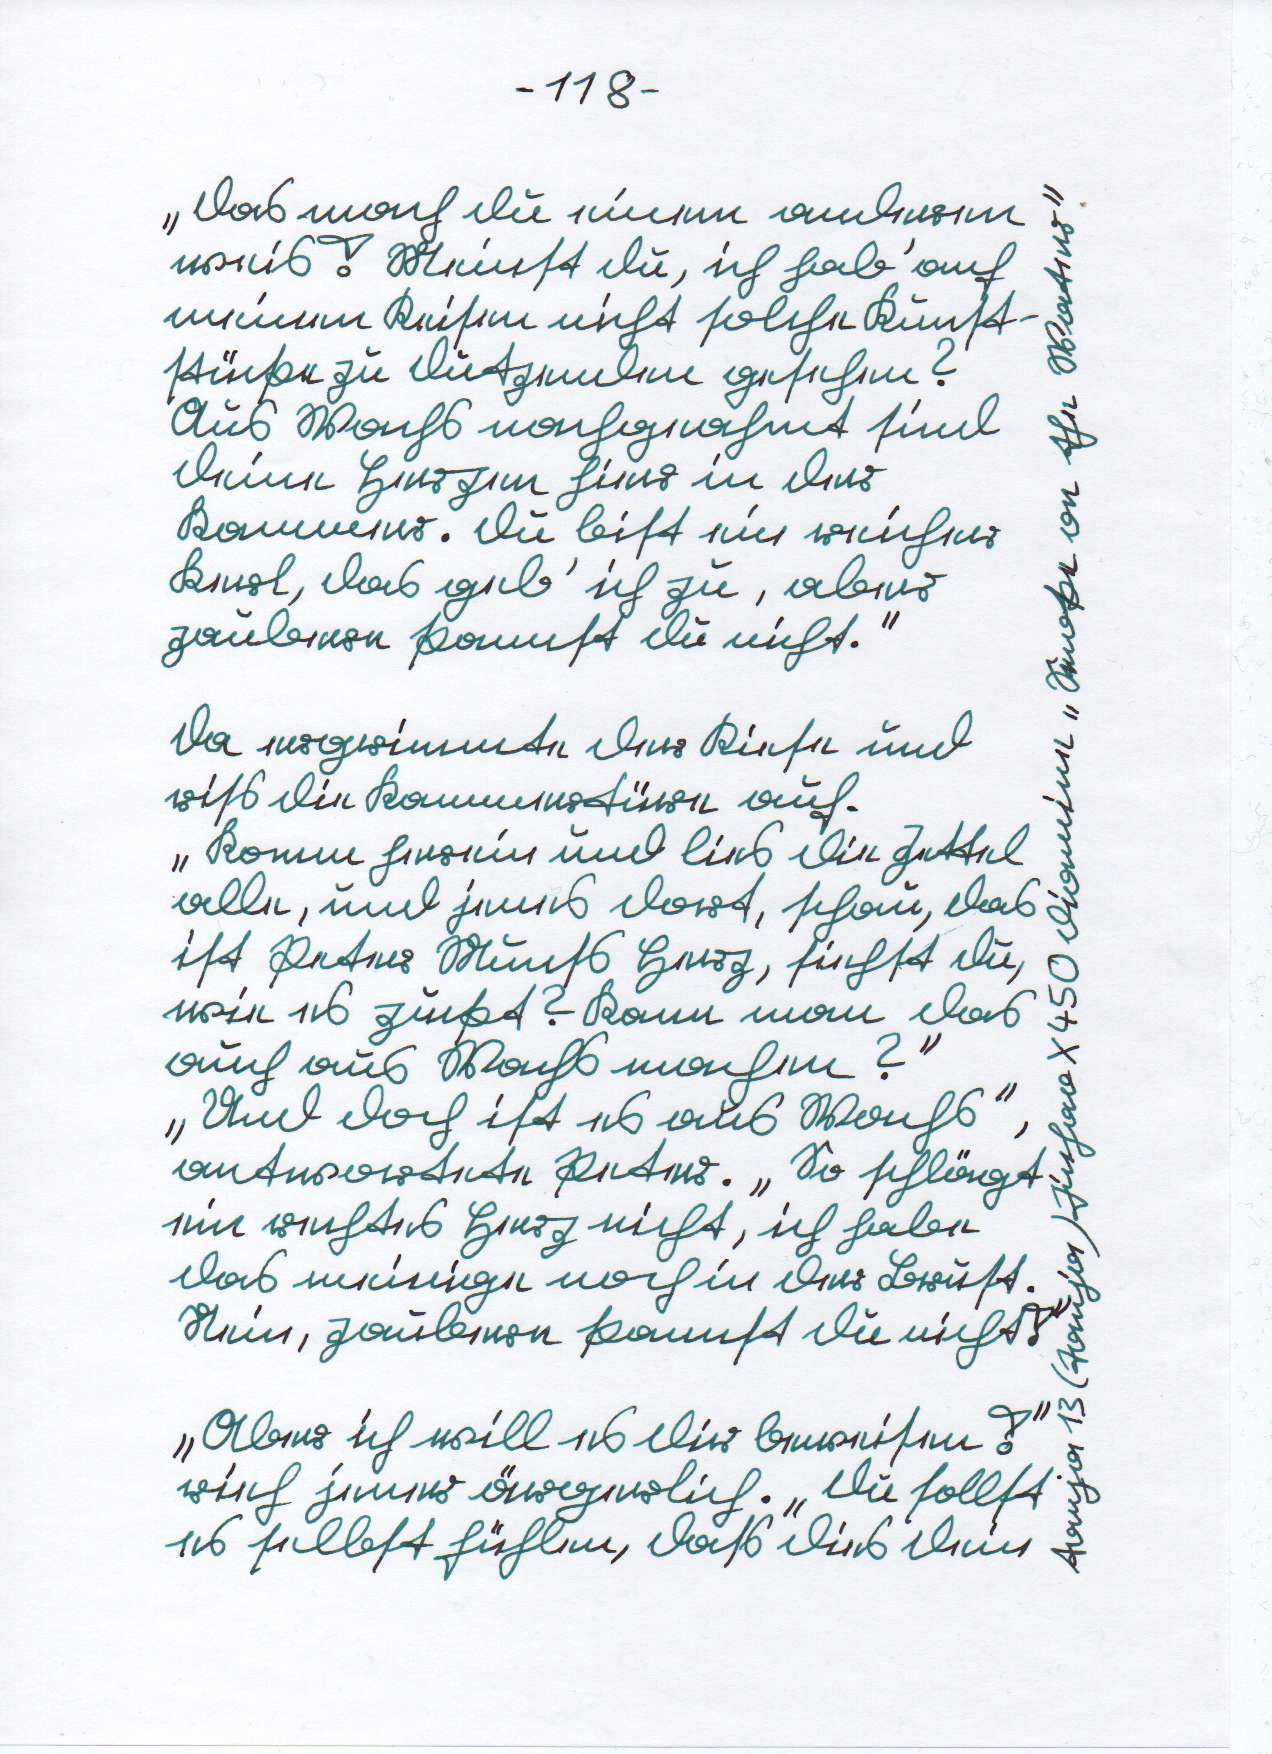 -118-
„Das mach du einem anderen
weis! Meinst du, ich hab' auf
meinen Reisen nicht solche Kunst-
stücke zu Dutzenden gesehen?
Aus Wachs nachgeahmt sind
deine Herzen hier in der
Kammer. Du bist ein reicher
Kerl, das geb' ich zu, aber
zaubern kannst du nicht."
Da ergrimmte der Riese und
riß die Kammertüre auf.
„Komm herein und lies die Zettel
alle, und jenes dort, schau, das
ist Peter Munks Herz, siehst du,
wie es zuckt? Kann man das
auch aus Wachs machen?"
„Und doch ist es aus Wachs",
antwortete Peter. „So schlägt
ein rechtes Herz nicht, ich habe
das meinige noch in der Brust.
Nein, zaubern kannst du nicht!"
„Aber ich will es dir beweisen!"
rief jener ärgerlich. „Du sollst
es selbst fühlen, daß dies dein
450 Diamine „Smoke on the Water"